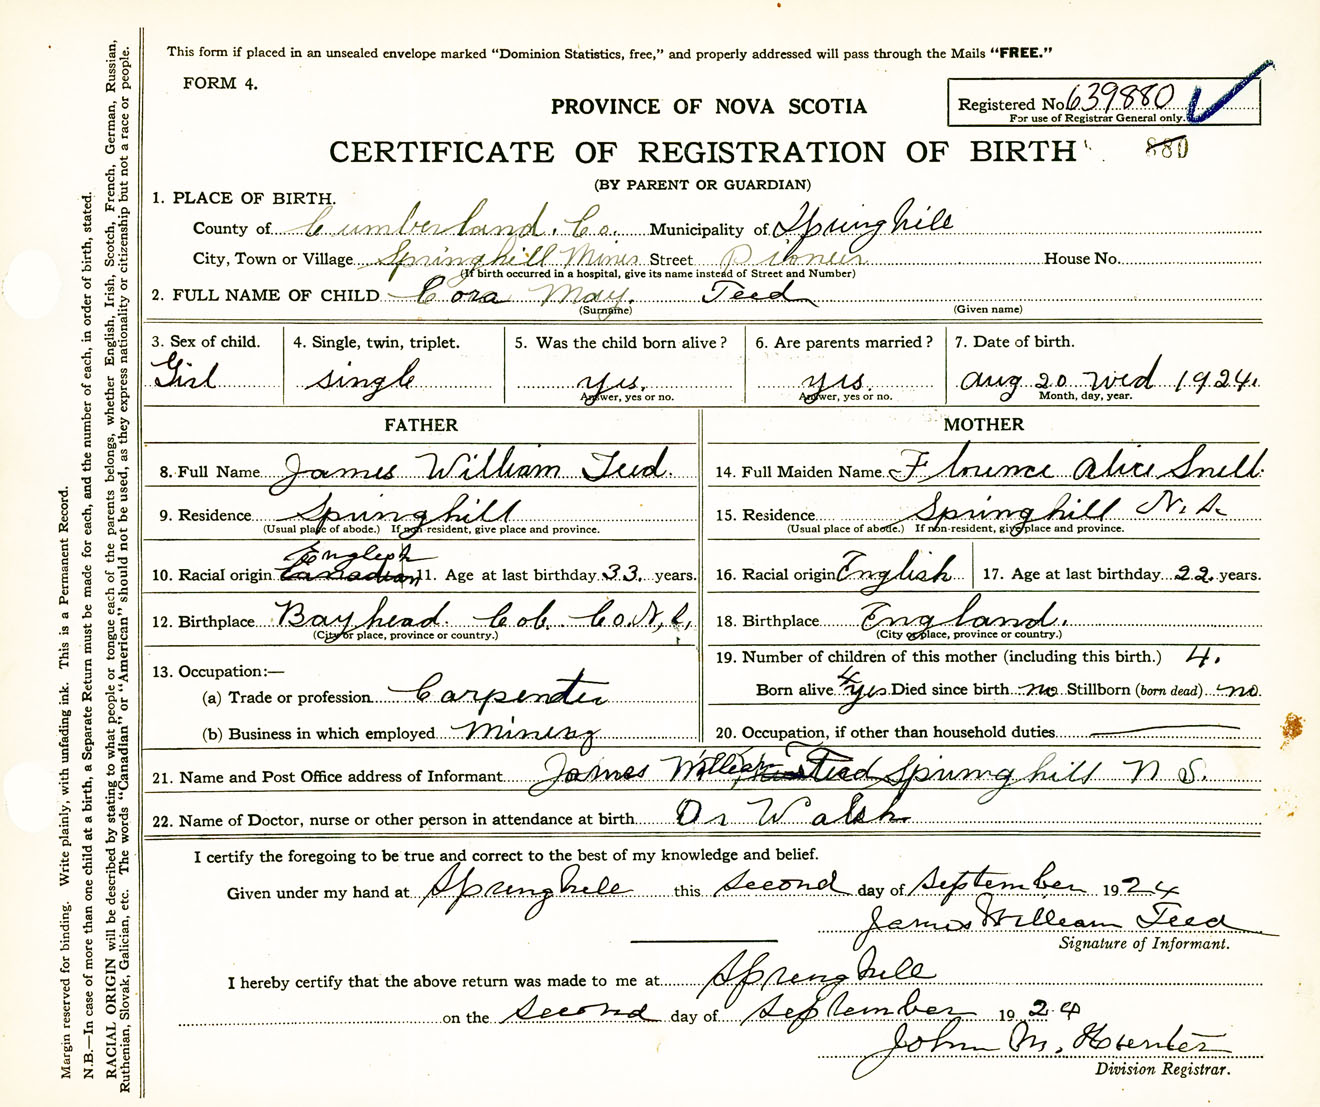 This form if placed in an unsealed envelope marked “Dominion Statistics, free,” and properly addressed will pass through the Mails “FREE.”
FORM 4.
Registered No. 639880
For use of Registrar General only.
PROVINCE OF NOVA SCOTIA
CERTIFICATE OF REGISTRATION OF BIRTH
880
(BY PARENT OR GUARDIAN)
1. PLACE OF BIRTH.
County of Cumberland. Co. Municipality of Springhill
City, Town or Village Springhill Mines Street Pioneer House No.
(If birth occurred in a hospital, give its name instead of Street and Number)
2. FULL NAME OF CHILD Cora May. Teed
(Surname) (Given name)
3. Sex of child. 4. Single, twin, triplet. 5. Was the child born alive? 6. Are parents married? 7. Date of birth.
Girl single yes. yes. Aug 20 Wed 1924.
Answer, yes or no. Answer, yes or no. Month, day, year.
FATHER MOTHER
8. Full Name James William Teed. 14. Full Maiden Name Florence Alice Snell.
9. Residence Springhill 15. Residence Springhill N.S.
(Usual place of abode.) If not resident, give place and province. (Usual place of abode.) If non-resident, give place and province.
English
10. Racial origin Canadian 11. Age at last birthday 33. years. 16. Racial origin English 17. Age at last birthday 22. years.
12. Birthplace Bayhead. Col. Co. N.S. 18. Birthplace England.
(City or place, province or country.) (City or place, province or country.)
13. Occupation:— 19. Number of children of this mother (including this birth.) 4.
(a) Trade or profession Carpenter Born alive 4 yes. Died since birth no Stillborn (born dead) no.
(b) Business in which employed Mining 20. Occupation, if other than household duties
21. Name and Post Office address of Informant James William Teed Springhill N S.
22. Name of Doctor, nurse or other person in attendance at birth Dr Walsh
I certify the foregoing to be true and correct to the best of my knowledge and belief.
Given under my hand at Springhill this second day of September 1924
James William Teed
Signature of Informant.
I hereby certify that the above return was made to me at Springhill
on the second day of September 1924
John M. Hunter
Division Registrar.
Margin reserved for binding. Write plainly, with unfading ink. This is a Permanent Record.
N.B.—In case of more than one child at a birth, a Separate Return must be made for each, and the number of each, in order of birth, stated.
RACIAL ORIGIN will be described by stating to what people or tongue each of the parents belongs, whether English, Irish, Scotch, French, German, Russian,
Ruthenian, Slovak, Galician, etc. The words “Canadian” or “American” should not be used, as they express nationality or citizenship but not a race or people.